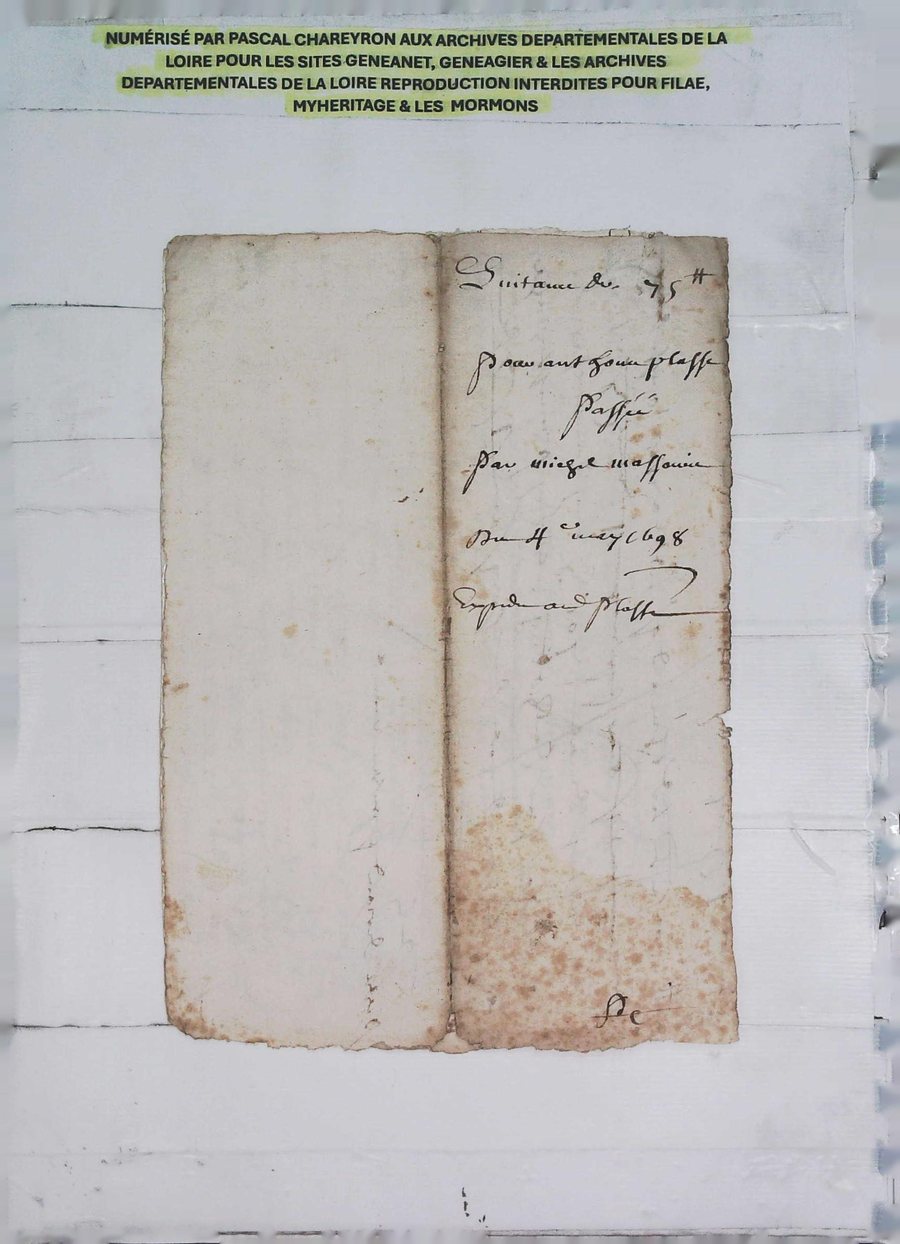 NUMÉRISÉ PAR PASCAL CHAREYRON AUX ARCHIVES DEPARTEMENTALES DE LA
LOIRE POUR LES SITES GENEANET, GENEAGIER & LES ARCHIVES
DEPARTEMENTALES DE LA LOIRE REPRODUCTION INTERDITES POUR FILAE,
MYHERITAGE & LES MORMONS
Quitance de 75 ₶
Pour anthoine plasse
Passée
Par michel massonin
Du 4e may 1698
Expedie aud plasse